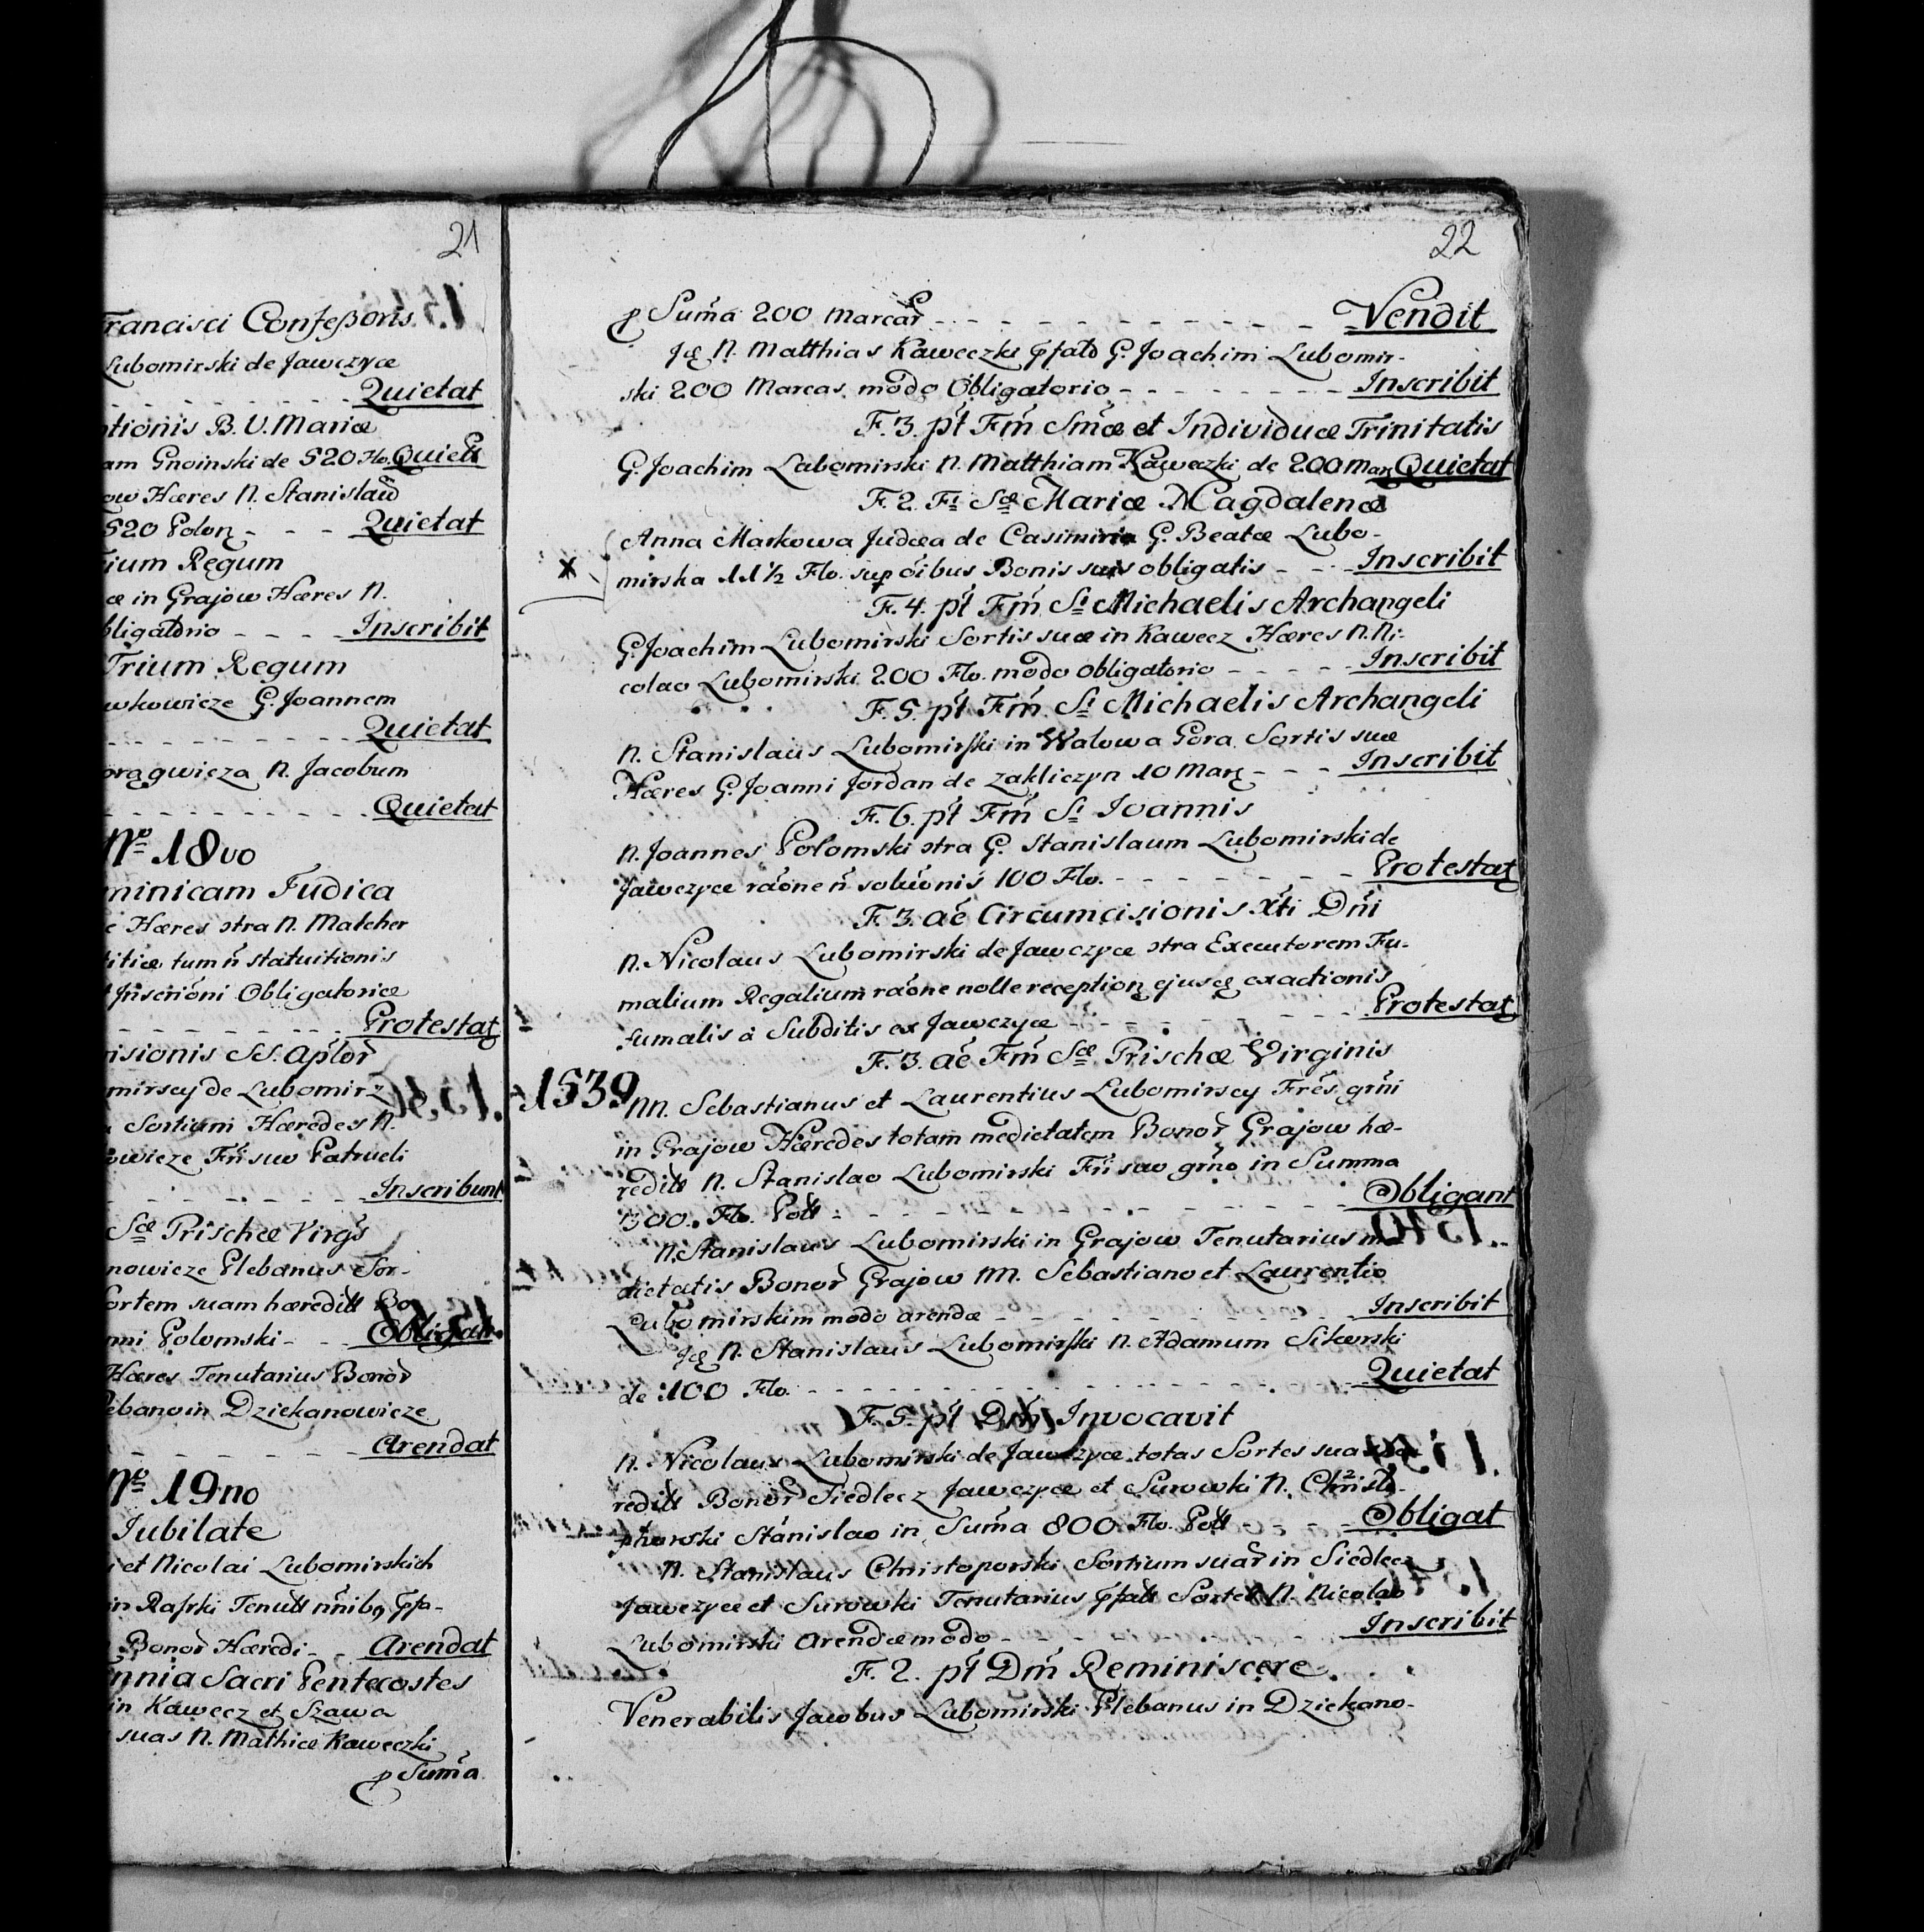 21
Francisci Confeßoris
Lubomirski de Jawczyce
Quietat
tionis B. V. Mariæ
am Gnoinski de 520 Flo. Quiet
ow Hæres N. Stanislaũ
520 Polon - - - Quietat
ium Regum
æ in Grajow Hæres N.
bligatorio - - - - Inscribit
Trium Regum
wkowicze G. Joannem
Quietat
orągwicza N. Jacobum
Quietat
Nº 18vo
minicam Judica
e Hæres ɔtra N. Malcher
titiæ, tum ñ statuitionis
Inscrióni Obligatoriæ
Protestaʈ
isionis SS. Aplor̃
mirscy de Lubomirz
Sortium Hæredes N.
owicze Fr̃i suo Patrueli
Inscribunt
Scæ Prischæ Virg̃s
nowicze Plebanus Sor-
ortem suam hæredit̃t Bo
nni Polomski - - Obligat
Hæres Tenutarius Bonor̃
lebano in Dziekanowicze
Arendat
Nº 19no
Jubilate
i et Nicolai Lubomirskich
in Rafski Tenutt
Bonor̃ Hæredi - - Arendat
nnia Sacri Pentecostes
in Kawecz et Szawa
suas N. Mathiæ Kaweczki
p Sum̃a
22
p Sum̃a 200 marcar̃ - - - Vendit
Jꝗ N. Matthias Kaweczki ꝑfato G. Joachim Lubomir-
ski 200 Marcas modo Obligatorio - - - Inscribit
F. 3. p̃t Fm̃ Sm̃æ et Individuæ Trinitatis
G. Joachim Lubomirski N. Matthiam Kaweczki de 200 Mar Quietat
F. 2. Fi Scæ Mariæ Magdalenæ
Anna Markowa Judæa de Casimiria G. Beatæ Lubo-
x mirska 11 1/2 Flo. sup oĩbus Bonis suis obligatis - - - Inscribit
F. 4. p̃t Fm̃ Si Michaelis Archangeli
G. Joachim Lubomirski Sortis suæ in Kawecz Hæres N. Ni-
colao Lubomirski 200 Flo. modo Obligatorio - - - Inscribit
F. 5. p̃t Fm̃ Si Michaelis Archangeli
N. Stanislaus Lubomirski in Walowa Gora Sortis suæ
Hæres G. Joanni Jordan de Zakliczyn 10 Mar - - - Inscribit
F. 6. p̃t Fm̃ Si Joannis
N. Joannes Polomski ɔtra G. Stanislaum Lubomirski de
Jawczyce raõne ñ soluõnis 100 Flo. - - - Protestaʈ
F. 3. añ Circumcisionis Xti Dñi
N. Nicolaus Lubomirski de Jawczyce ɔtra Executorem Fu-
malium Regalium raõne nolle reception ejusꝗ exactionis
fumalis à Subditis ex Jawczyce - - - Protestaʈ
F. 3. añ Fm̃ Scæ Prischæ Virginis
1539 NN. Sebastianus et Laurentius Lubomirscy Frẽs grñi
in Grajow Hæredes totam medietatem Bonor̃ Grajow hæ-
redit̃t N. Stanislao Lubomirski Fr̃i suo grñο in Summa
300. Flo. Poll - - - Obligant
N. Stanislaus Lubomirski in Grajow Tenutarius me-
dietatis Bonor̃ Grajow NN. Sebastiano et Laurentio
Lubomirskim modo arendæ - - - Inscribit
Jꝗ N. Stanislaus Lubomirski N. Adamum Sikorski
de 100 Flo. - - - Quietat
F. 5. p̃t Dm̃ Invocavit
N. Nicolaus Lubomirski de Jawczyce totas Sortes suas
redit̃t Bonor̃ Siedlecz Jawczyce et Surowki N. Christo-
phorski Stanislao in Sum̃a 800 Flo. Poll - - - Obligat
N. Stanislaus Christoporski Sortium suar̃ in Siedlec
Jawczyce et Surowki Tenutarius ꝑfatt Sortes N. Nicolao
Lubomirski Arendæ modo - - - Inscribit
F. 2. p̃t Dm̃ Reminiscere
Venerabilis Jacobus Lubomirski Plebanus in Dziekano-